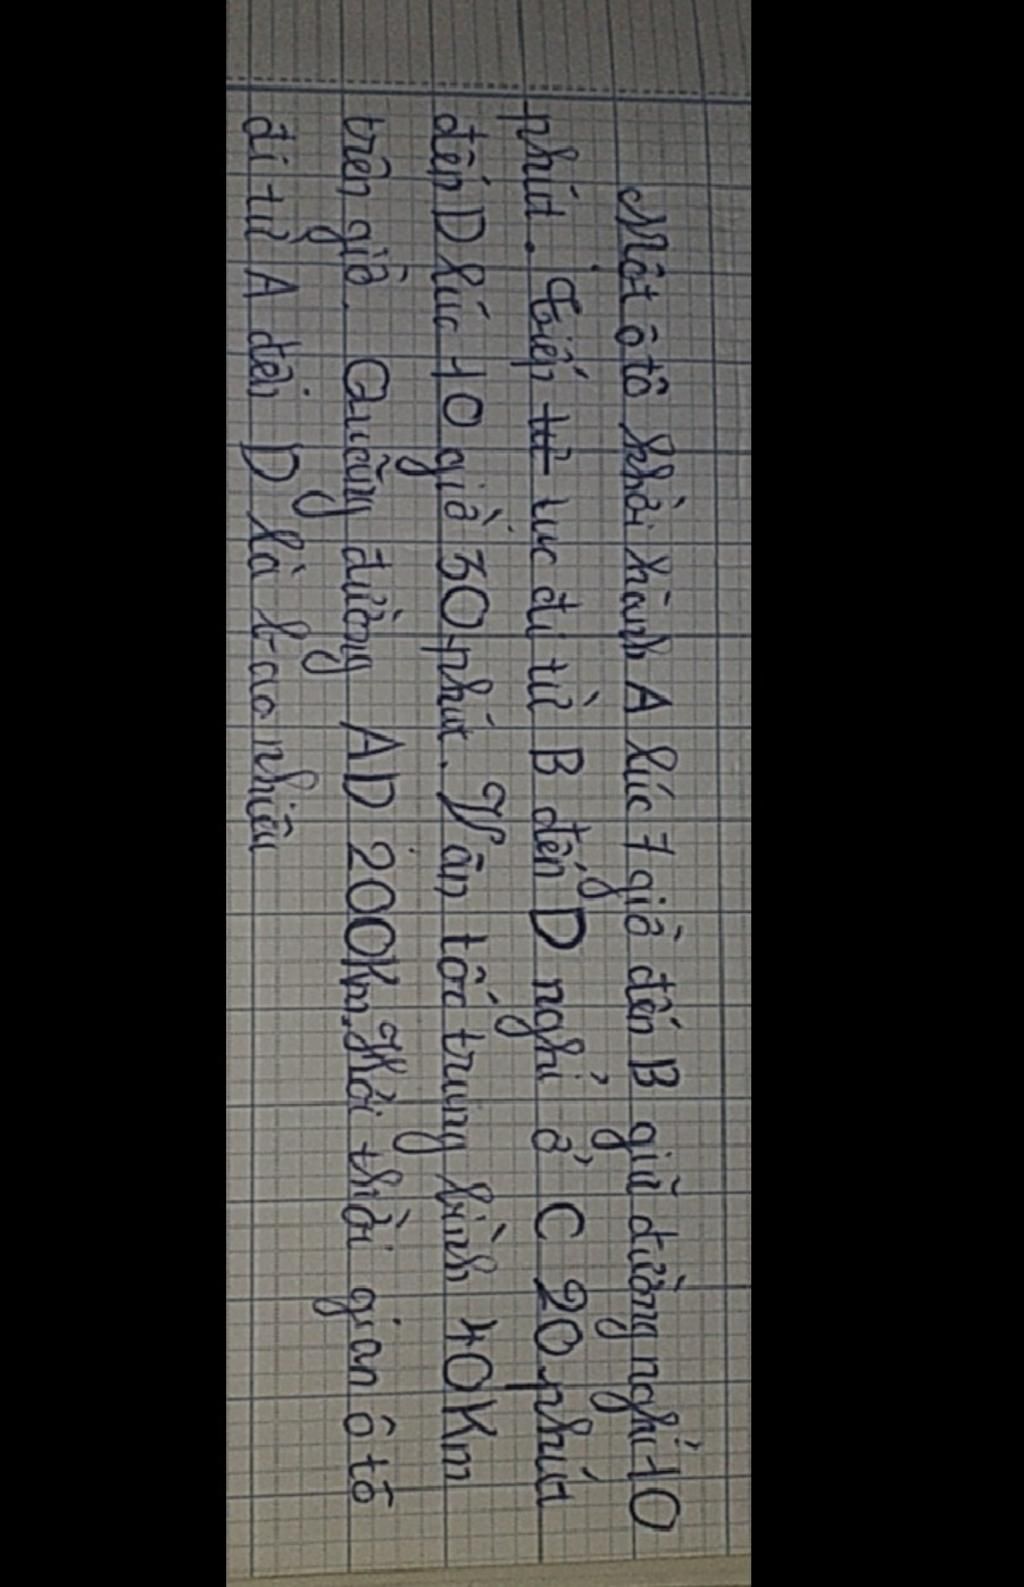 Một ô tô khởi hành A lúc 7 giờ đến B giữ đường nghỉ 10
phút. Tiếp tư tục đi từ B đến D nghỉ ở C 20 phút
đến D lúc 10 giờ 30 phút. Vận tốc trung bình 40Km
trên giờ. Quãng đường AD 200Km, Hỏi thời gian ô tô
đi từ A đến D là bao nhiêu